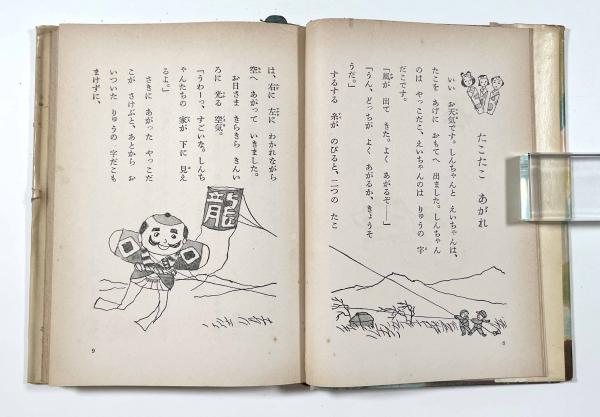 たこたこ　あがれ
いい　お天気です。しんちゃんと　えいちゃんは、
たこを　あげに　おもてへ　出ました。しんちゃん
のは　やっこだこ、えいちゃんのは　りゅうの　字
だこです。
「風が　出て　きた。よく　あがるぞ――」
「うん、どっちが　よく　あがるか、きょうそ
うだ。」
するする　糸が　のびると、二つの　たこ
8
は、右に　左に　わかれながら
空へ　あがって　いきました。
お日さま　きらきら　きんい
ろに　光る　空気。
「うわーっ、すごいな。しんち
ゃんたちの　家が　下に　見え
るよ。」
さきに　あがった　やっこだ
こが　さけぶと、あとから　お
いついた　りゅうの　字だこも
まけずに、
龍
9